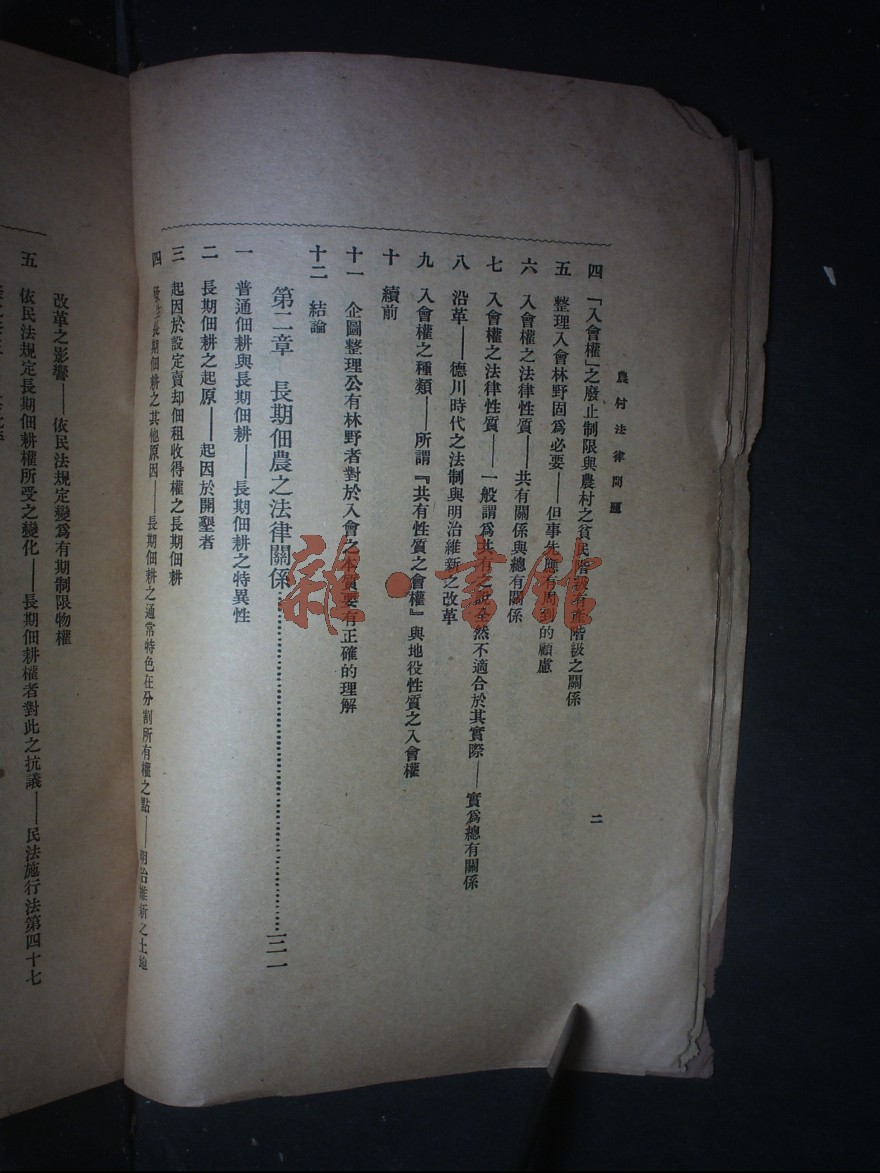 農村法律問題
二
四 「入會權」之廢止制限與農村之貧民階級有產階級之關係
五 整理入會林野固爲必要——但事先應有周到的顧慮
六 入會權之法律性質——共有關係與總有關係
七 入會權之法律性質——一般謂爲共有之說全然不適合於其實際——實爲總有關係
八 沿革——德川時代之法制與明治維新之改革
九 入會權之種類——所謂『共有性質之會權』與地役性質之入會權
十 續前
十一 企圖整理公有林野者對於入會之本質要有正確的理解
十二 結論
第二章 長期佃農之法律關係…………三一
一 普通佃耕與長期佃耕——長期佃耕之特異性
二 長期佃耕之起原——起因於開墾者
三 起因於設定賣却佃租收得權之長期佃耕
四 發生長期佃耕之其他原因——長期佃耕之通常特色在分割所有權之點——明治維新之土地
改革之影響——依民法規定變爲有期制限物權
五 依民法規定長期佃耕權所受之變化——長期佃耕權者對此之抗議——民法施行法第四十七
雜·書館